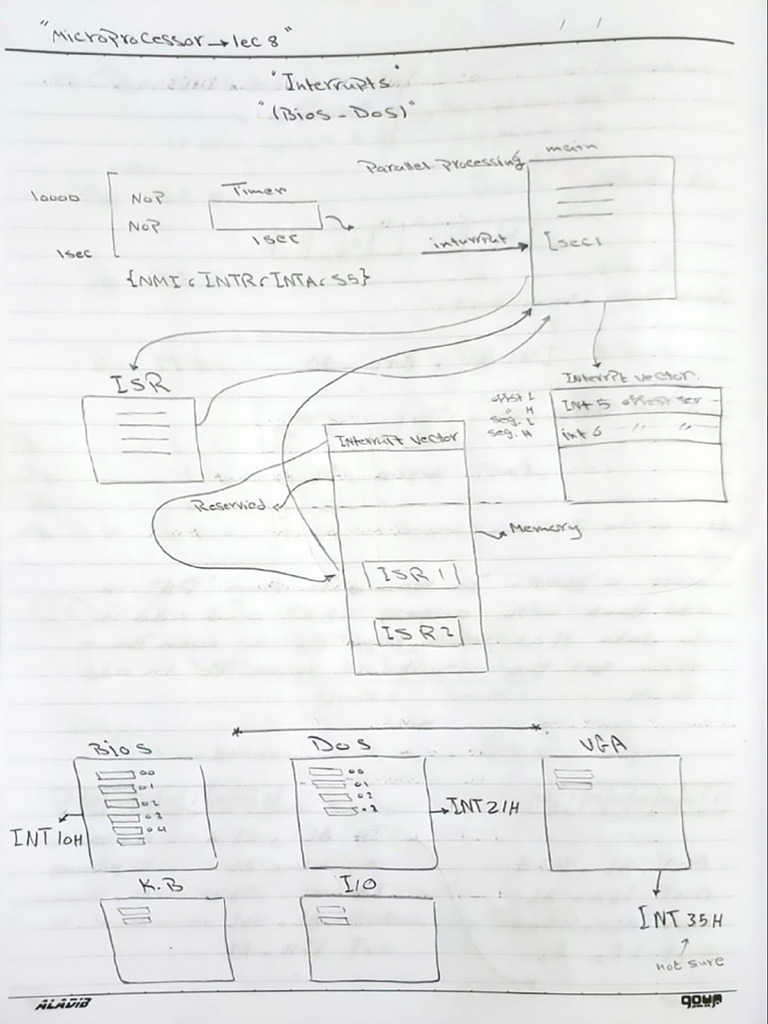 "MicroProcessor → lec 8"
"Interrupts"
"(Bios - Dos)"
Parallel Processing
main
10000
NOP
NOP
1sec
Timer
1sec
inturrput
[sec1
{NMI, INTR, INTA, S5}
ISR
Interrpt vector
offst L
" H
seg. L
seg. H
INT 5 offest ser
int 6 " "
Interrupt vector
Reservied
Memory
ISR 1
ISR 2
Bios
00
01
02
03
04
INT 10H
Dos
00
01
02
03
INT 21H
VGA
INT 35H
not sure
K.B
I/O
ALADIB